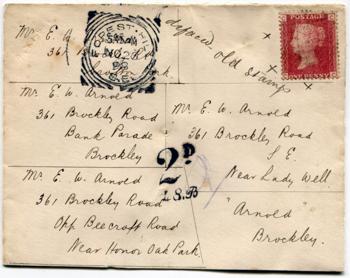 Mr. E. A
361
defaced old stamp
FOREST-HILL
NO 26
98
S.E.
POSTAGE
ONE PENNY
Mr. E. W. Arnold
361 Brockley Road
Bank Parade
Brockley
Mr. E. W. Arnold
361 Brockley Road
S. E.
Near Lady Well.
2D
48.B
Mr. E. W. Arnold
361 Brockley Road
Opp Beecroft Road
Near Honor Oak Park.
"Arnold"
Brockley.